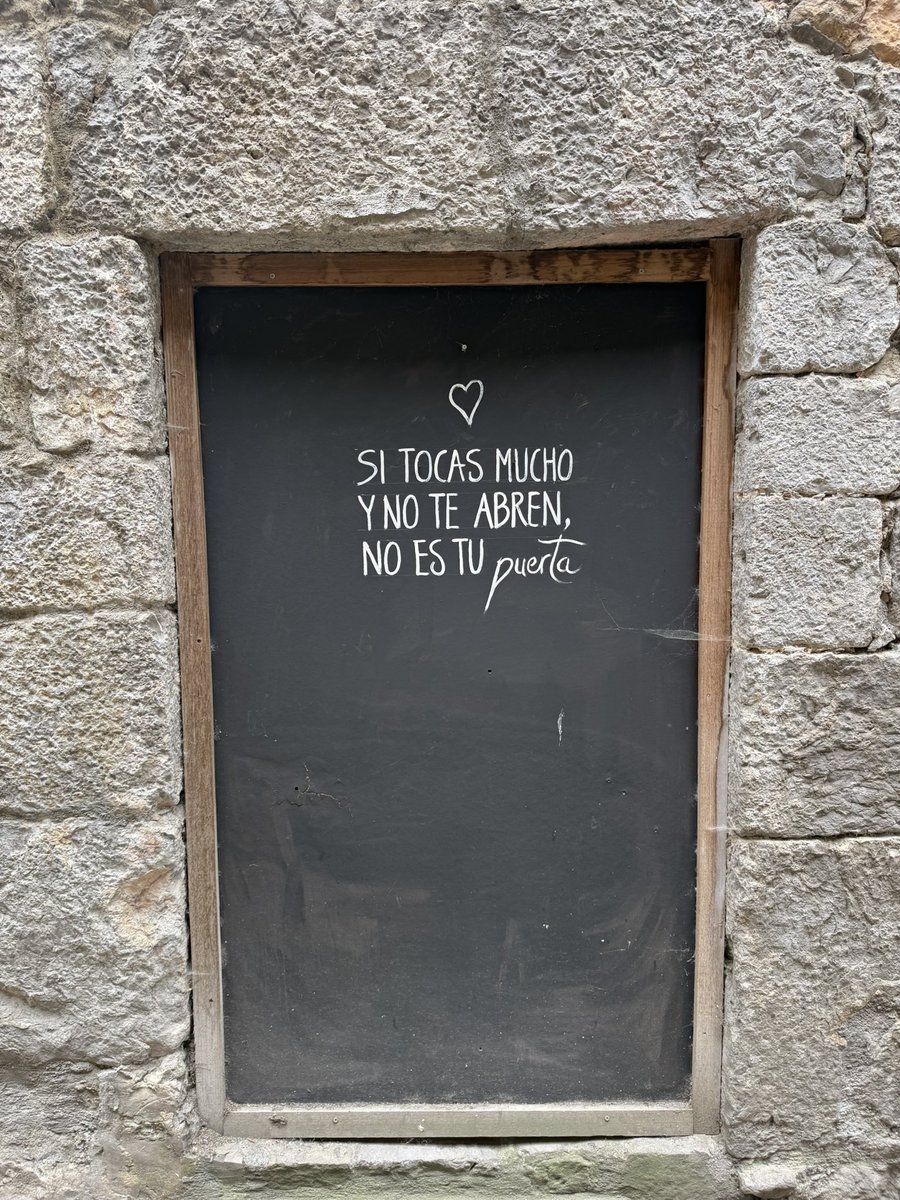 SI TOCAS MUCHO
Y NO TE ABREN,
NO ES TU puerta